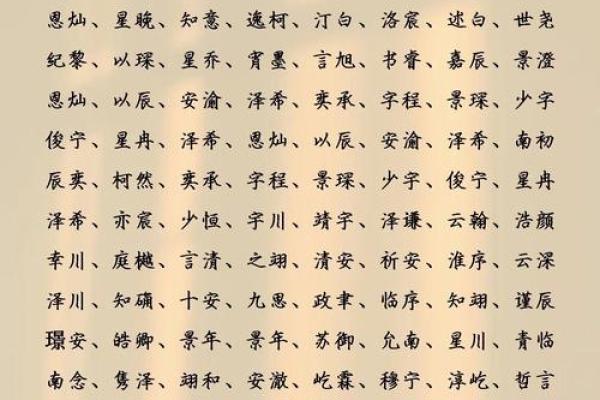 恩灿、星晚、知意、逸柯、汀白、洛宸、述白、世尧
纪黎、以琛、星乔、宵墨、言旭、书睿、嘉辰、景澄
恩灿、以辰、安渝、泽希、奕承、字程、景琛、少字
俊宁、星冉、泽希、恩灿、以辰、安渝、泽希、南初
辰奕、柯然、奕承、字程、景琛、少字、俊宁、星冉
泽希、亦宸、少恒、宇川、靖宇、泽谦、云翰、浩颜
幸川、庭樾、言清、之翊、清安、祈安、淮序、云深
泽川、知硧、十安、九思、政聿、临序、知翊、谨辰
璟安、皓卿、景年、景年、苏御、允南、星川、青临
南念、隽泽、翊和、安澈、屹霖、穆宁、淳屹、哲言